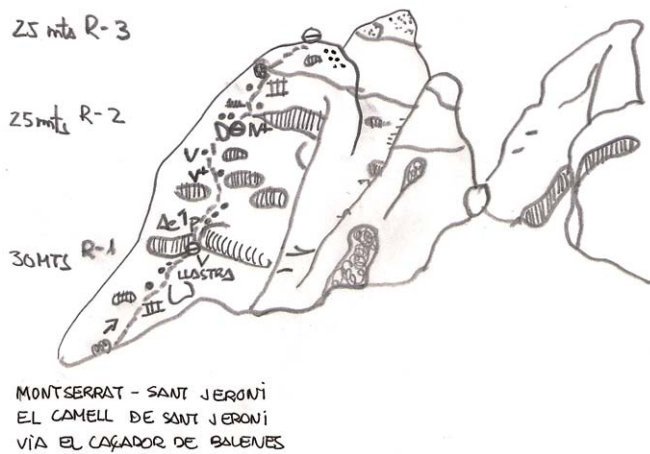 25 mts R-3
III
25 mts R-2
D IV+
V
V+
Ae 1p
30 MTS R-1
V
LLASTRA
III
MONTSERRAT - SANT JERONI
EL CAMELL DE SANT JERONI
VIA EL CAÇADOR DE BALENES